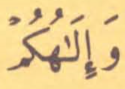 وَإِلَٰهُكُمْ